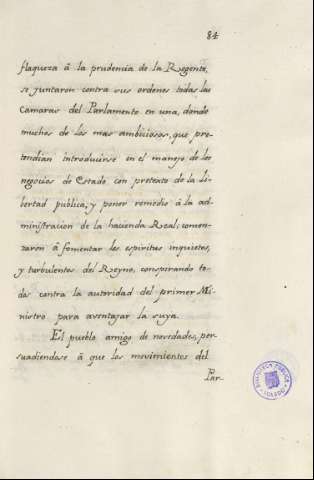 84
flaqueza â la prudencia de la Regente,
se juntaron contra sus ordenes todas las
Camaras del Parlamento en una, donde
muchos de los mas ambiciosos, que pre-
tendian introducirse en el manejo de los
negocios de Estado, con pretexto de la Li-
bertad publica, y poner remedio â la ad-
ministracion de la hacienda Real; comen-
zaron â fomentar los espiritus inquietos,
y turbulentos del Reyno, conspirando to-
dos contra la autoridad del primer Mi-
nistro para aventajar la suya.
El pueblo amigo de novedades, per-
suadiendose â que los movimientos del
Par-
BIBLIOTECA PUBLICA
TOLEDO